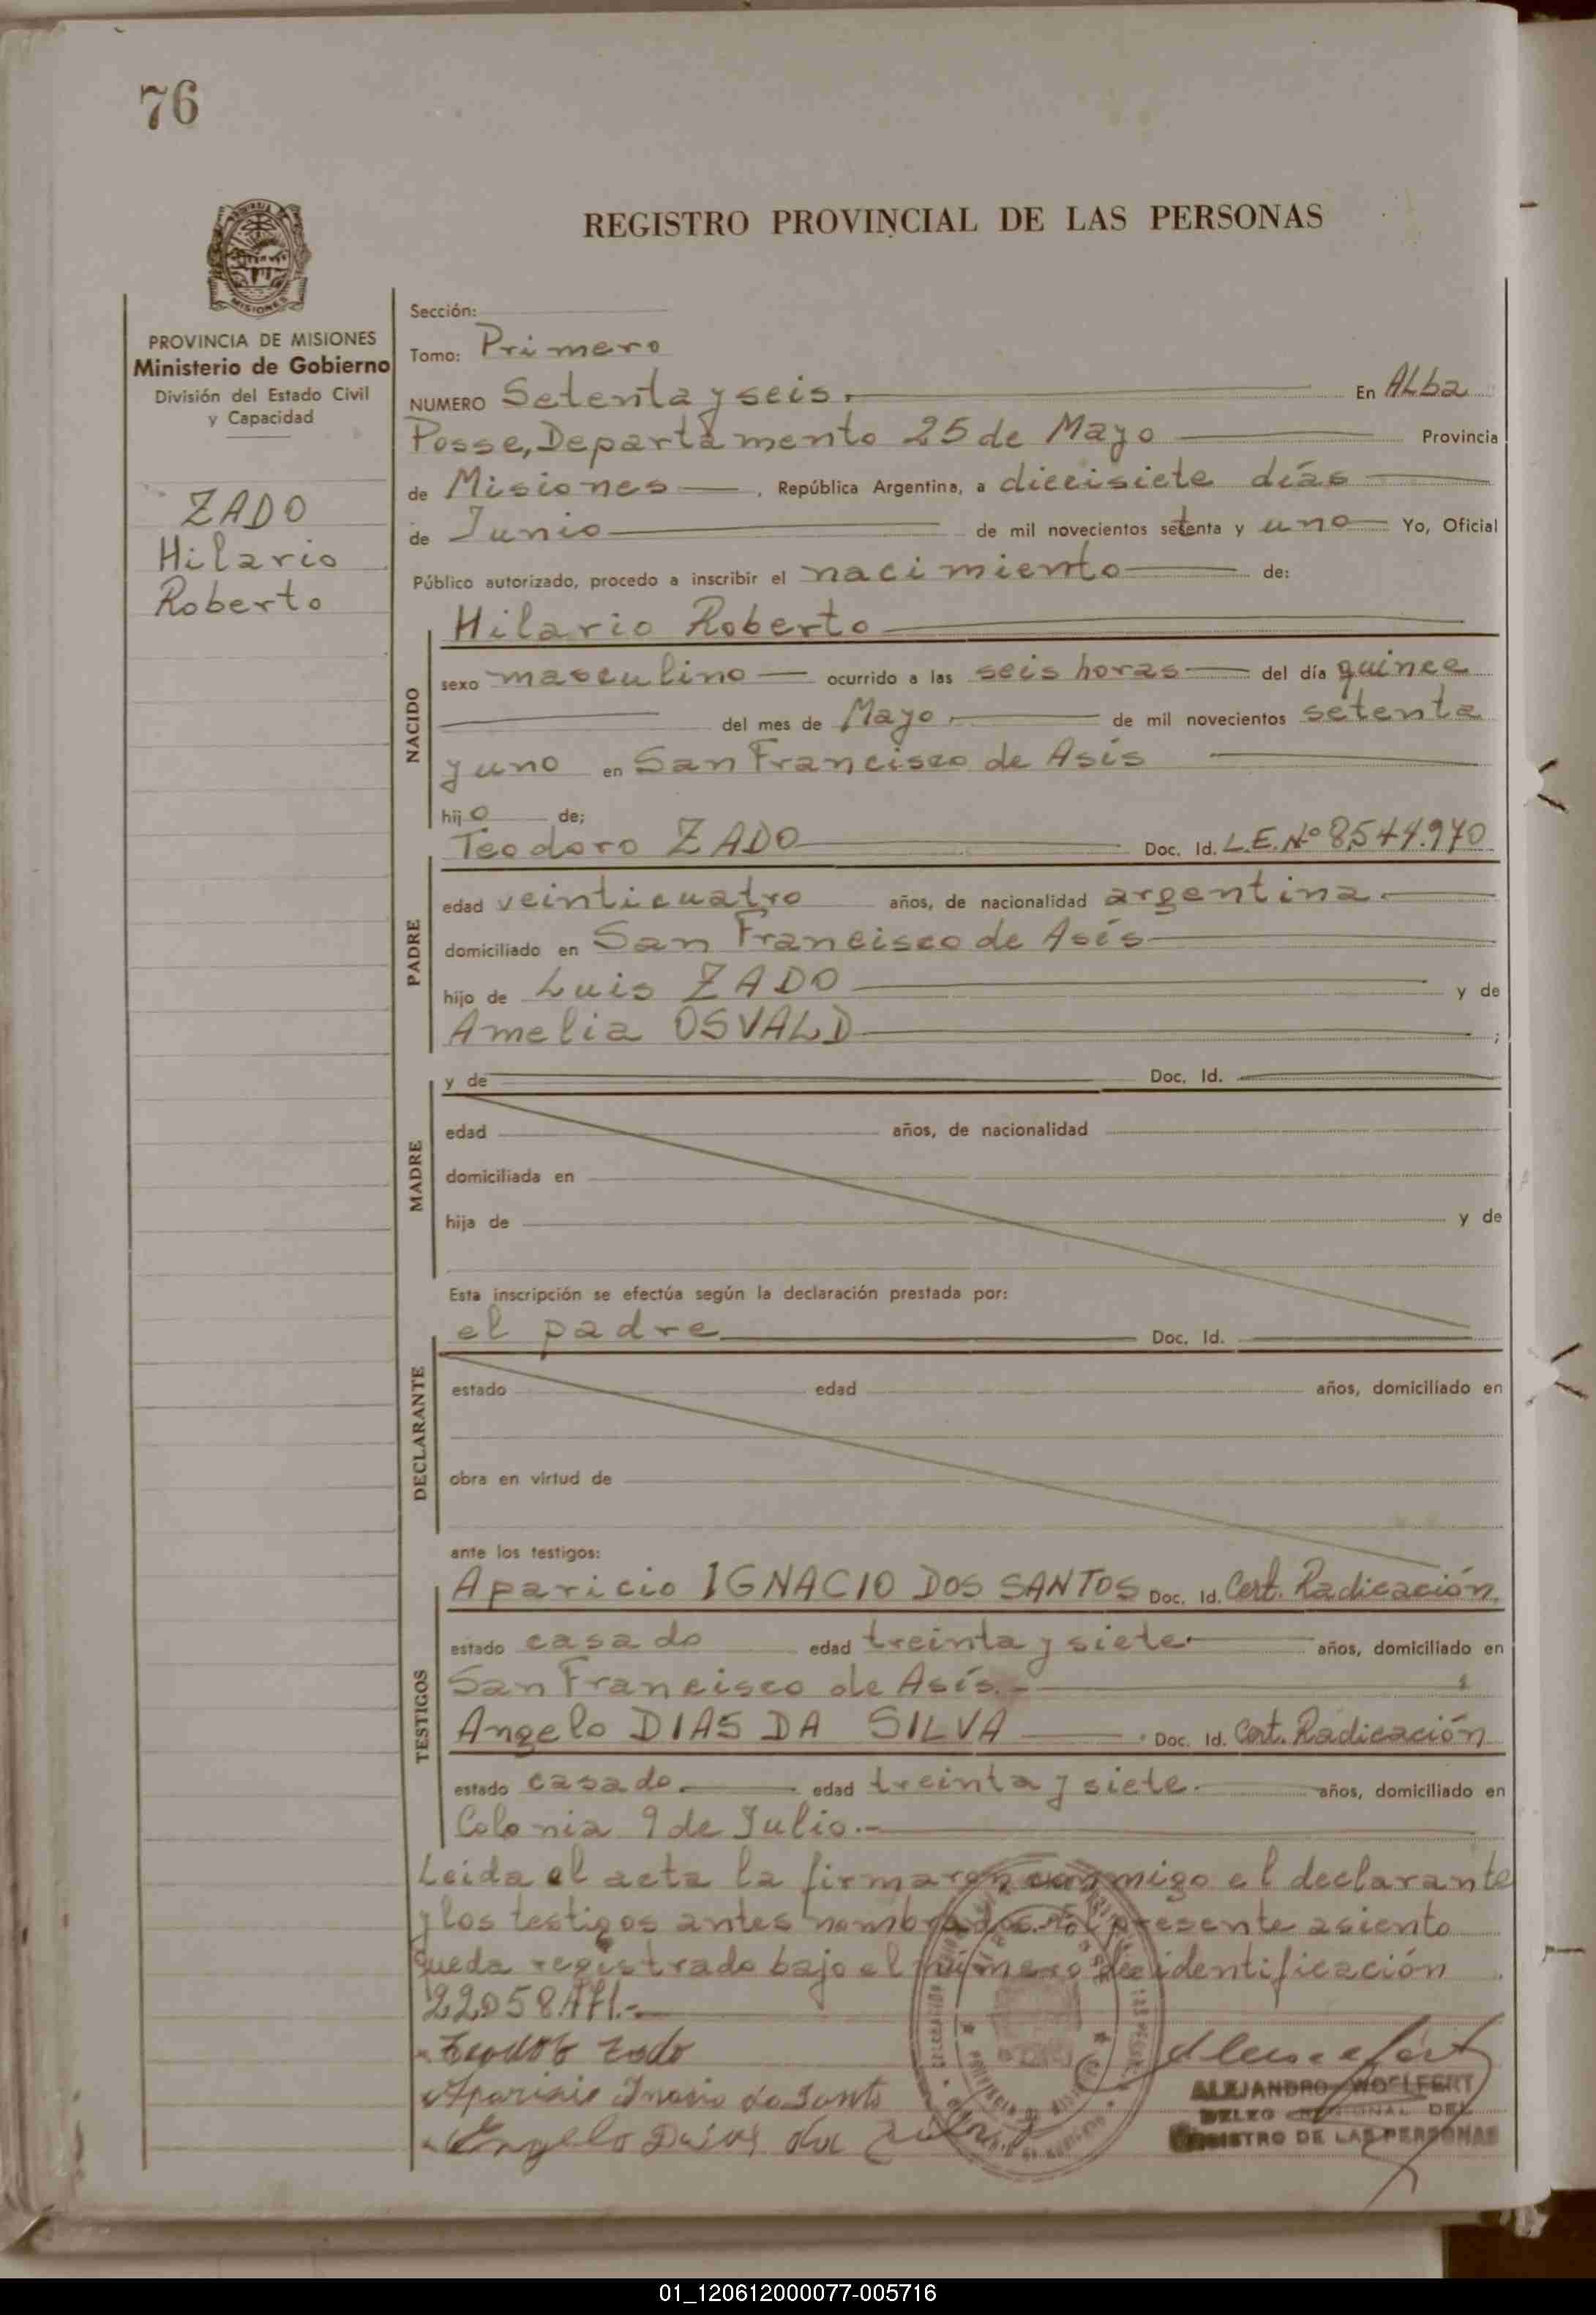 76
REGISTRO PROVINCIAL DE LAS PERSONAS
MISIONES
PROVINCIA DE MISIONES
Ministerio de Gobierno
División del Estado Civil
y Capacidad
ZADO
Hilario
Roberto
Sección:
Tomo: Primero
NUMERO Setenta y seis. En ALba
Posse, Departamento 25 de Mayo Provincia
de Misiones, República Argentina, a diecisiete días
de Junio de mil novecientos setenta y uno Yo, Oficial
Público autorizado, procedo a inscribir el nacimiento de:
Hilario Roberto
NACIDO
sexo masculino ocurrido a las seis horas del día quince
del mes de Mayo de mil novecientos setenta
y uno en San Francisco de Asís
hijo de;
Teodoro ZADO Doc. Id. L.E. Nº 8.544.970
PADRE
edad veinticuatro años, de nacionalidad argentina.
domiciliado en San Francisco de Asís
hijo de Luis ZADO y de
Amelia OSVALD ;
MADRE
y de Doc. Id.
edad años, de nacionalidad
domiciliada en
hija de y de
Esta inscripción se efectúa según la declaración prestada por:
el padre Doc. Id.
DECLARANTE
estado edad años, domiciliado en
obra en virtud de
ante los testigos:
Aparicio IGNACIO DOS SANTOS Doc. Id. Cert. Radicación.
TESTIGOS
estado casado edad treinta y siete años, domiciliado en
San Francisco de Asís.-
Angelo DIAS DA SILVA Doc. Id. Cert. Radicación
estado casado. edad treinta y siete. años, domiciliado en
Colonia 9 de Julio.-
Leida el acta la firmaron conmigo el declarante
y los testigos antes nombrados. El presente asiento
queda registrado bajo el número de identificación
22.058.471.-
Zado
Angelo Dias da Silva
ALEJANDRO WOELFERT
DELEG REGIONAL DEL
REGISTRO DE LAS PERSONAS
01_120612000077-005716